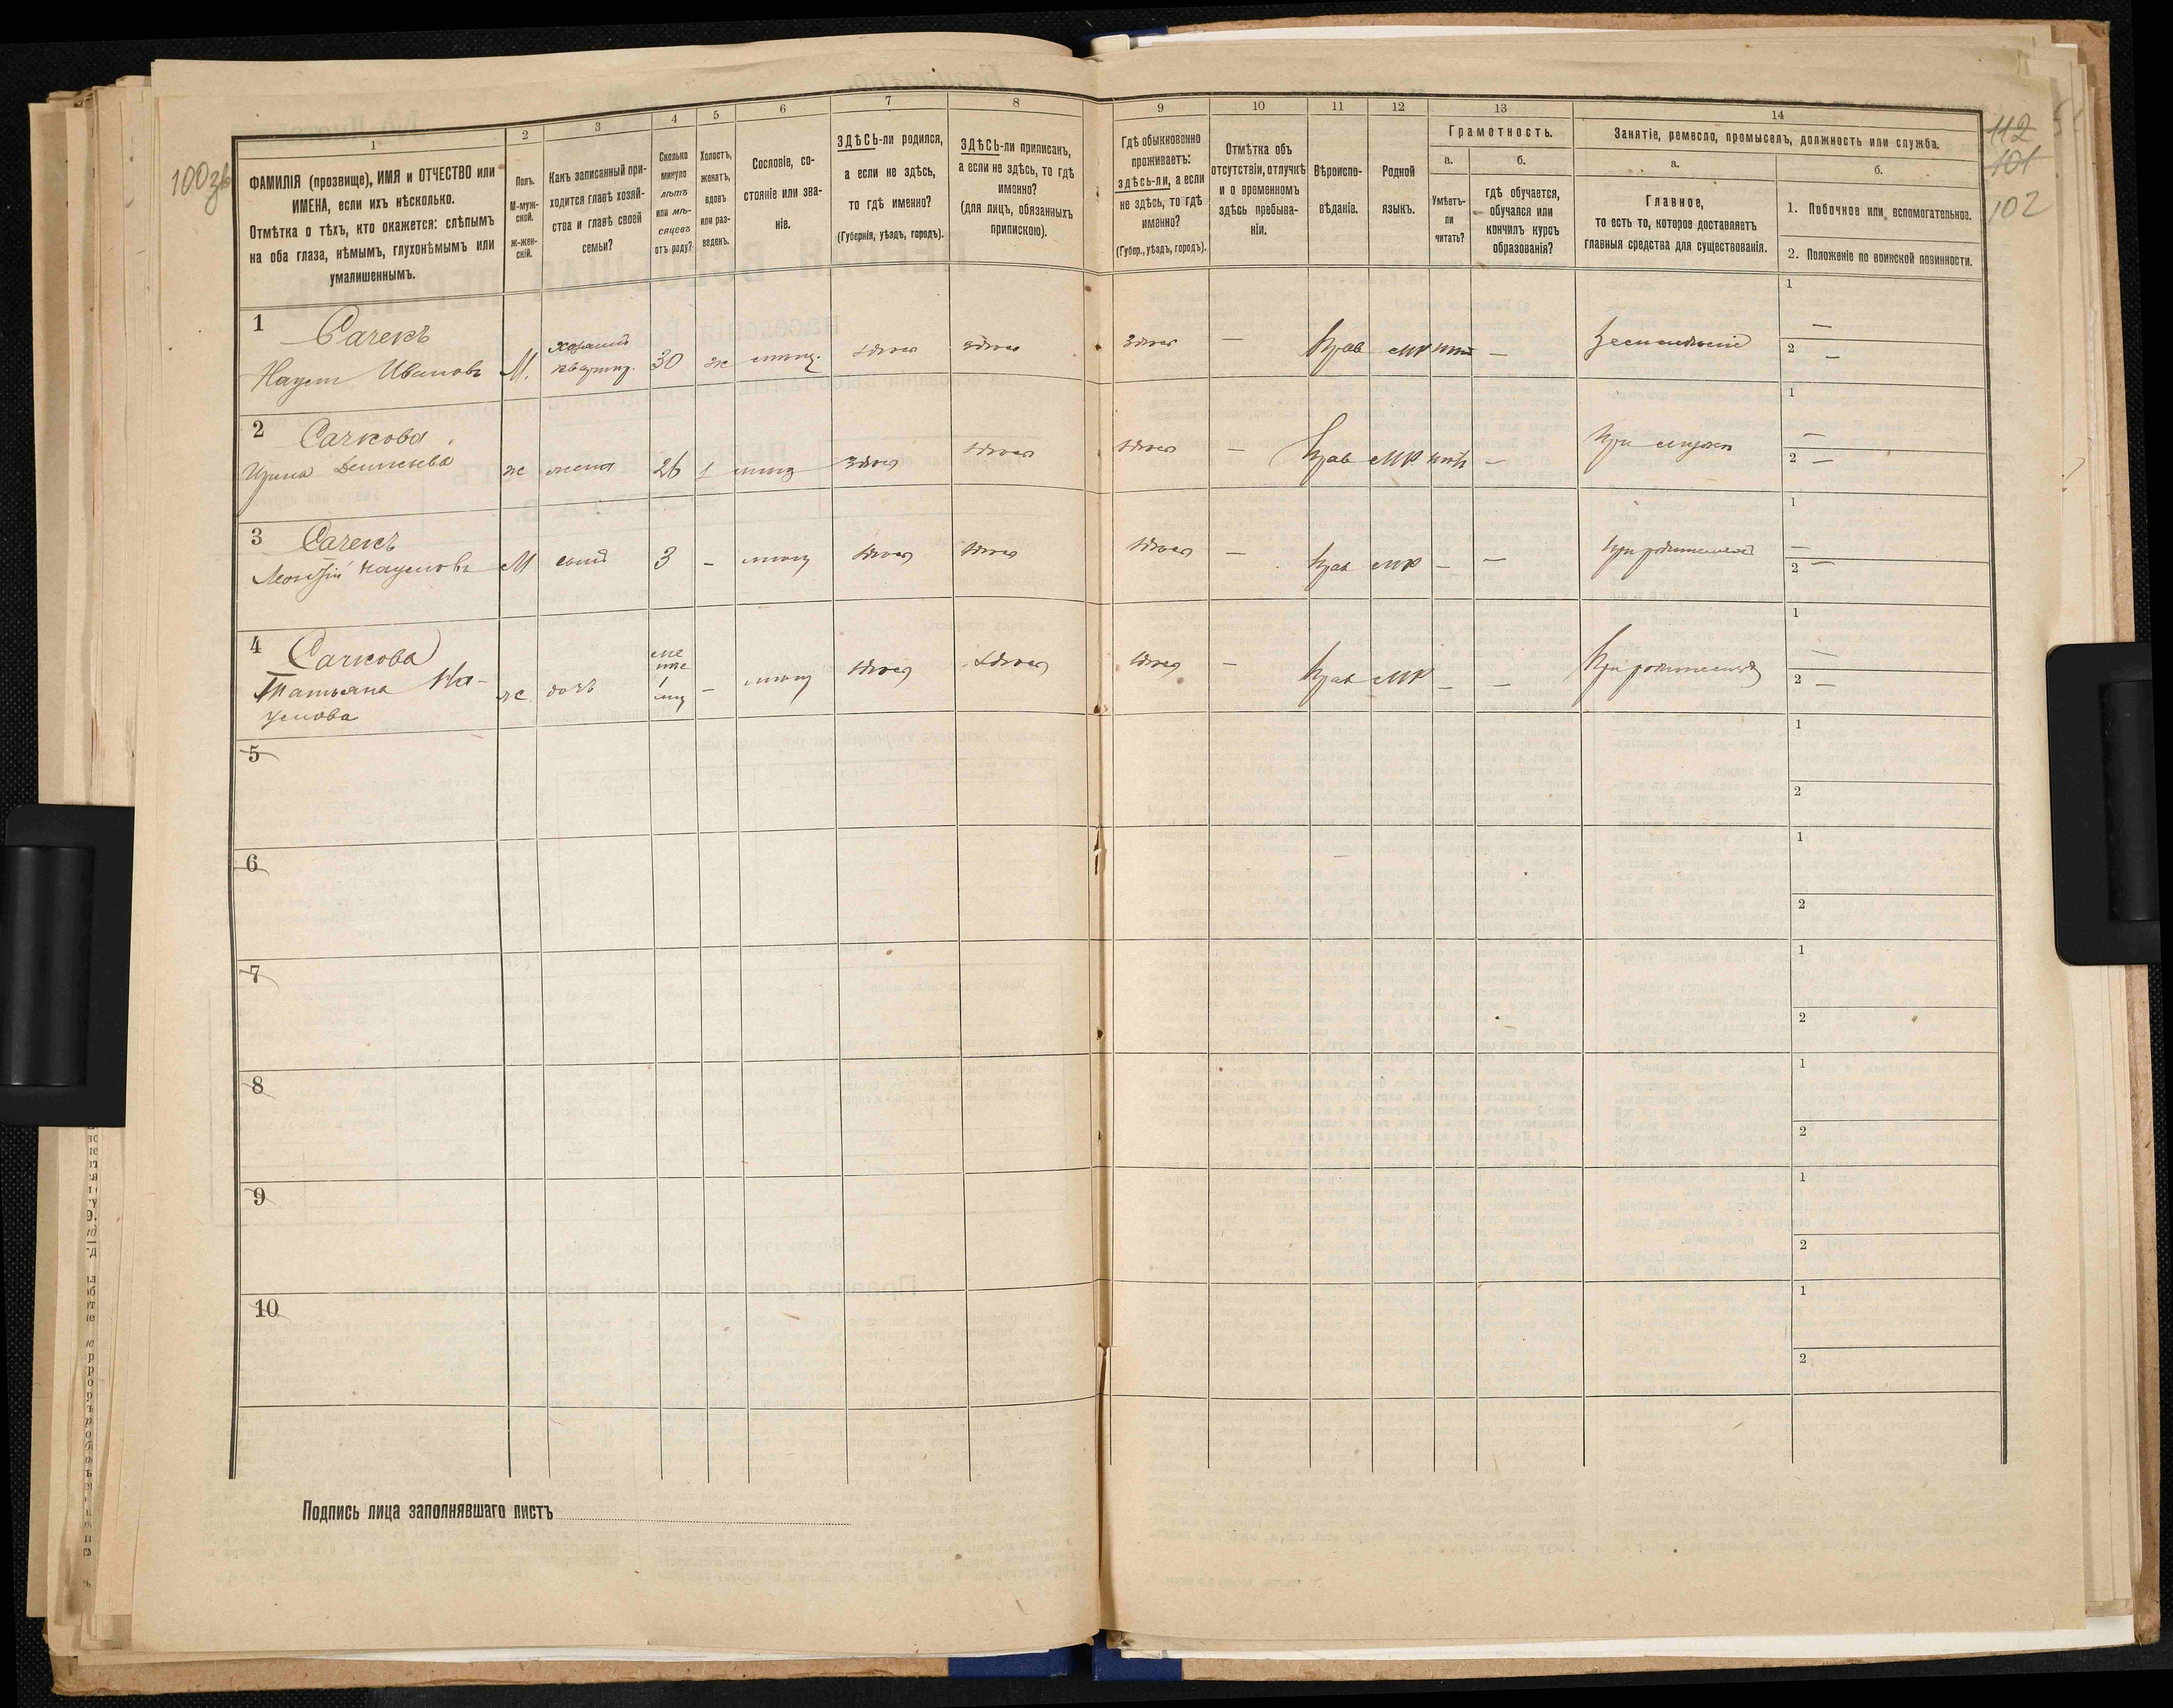 100зв
112
101
102
1
2
3
4
5
6
7
8
9
10
11
12
13
14
ФАМИЛІЯ (прозвище), ИМЯ и ОТЧЕСТВО или
ИМЕНА, если ихъ нѣсколько.
Отмѣтка о тѣхъ, кто окажется: слѣпымъ
на оба глаза, нѣмымъ, глухонѣмымъ или
умалишеннымъ.
Полъ.
М-муж-
ской.
Ж-жен-
скій.
Какъ записанный при-
ходится главѣ хозяй-
ства и главѣ своей
семьи?
Сколько
минуло
лѣтъ
или мѣ-
сяцевъ
отъ роду?
Холостъ,
женатъ,
вдовъ
или раз-
веденъ.
Сословіе, со-
стояніе или зва-
ніе.
ЗДѢСЬ-ли родился,
а если не здѣсь,
то гдѣ именно?
(Губернія, уѣздъ, городъ).
ЗДѢСЬ-ли приписанъ,
а если не здѣсь, то гдѣ
именно?
(для лицъ, обязанныхъ
припискою).
Гдѣ обыкновенно
проживаетъ:
здѣсь-ли, а если
не здѣсь, то гдѣ
именно?
(Губер., уѣздъ, городъ).
Отмѣтка объ
отсутствіи, отлучкѣ
и о временномъ
здѣсь пребыва-
ніи.
Вѣроиспо-
вѣданіе.
Родной
языкъ.
Грамотность.
а.
Умѣетъ-
ли
читать?
б.
гдѣ обучается,
обучался или
кончилъ курсъ
образованія?
Занятіе, ремесло, промыселъ, должность или служба.
а.
Главное,
то есть то, которое доставляетъ
главныя средства для существованія.
б.
1. Побочное или вспомогательное.
2. Положеніе по воинской повинности.
1 Сачекъ
Наумъ Ивановъ М. хозяинъ квартир. 30 ж здѣсь здѣсь здѣсь — Прав МР — 1 — 2 —
2 Сачкова
Ирина ж жена 26 здѣсь здѣсь здѣсь — Прав МР — При мужѣ 1 — 2 —
3 Сачекъ
Леонтій Наумовъ М сынъ 3 - здѣсь здѣсь здѣсь — Прав МР — — При родителяхъ 1 — 2 —
4 Сачкова
Татьяна На-
умова ж дочь - здѣсь здѣсь здѣсь — Прав МР — — При родителяхъ 1 — 2 —
5 1 2
6 1 2
7 1 2
8 1 2
9 1 2
10 1 2
Подпись лица заполнявшаго листъ